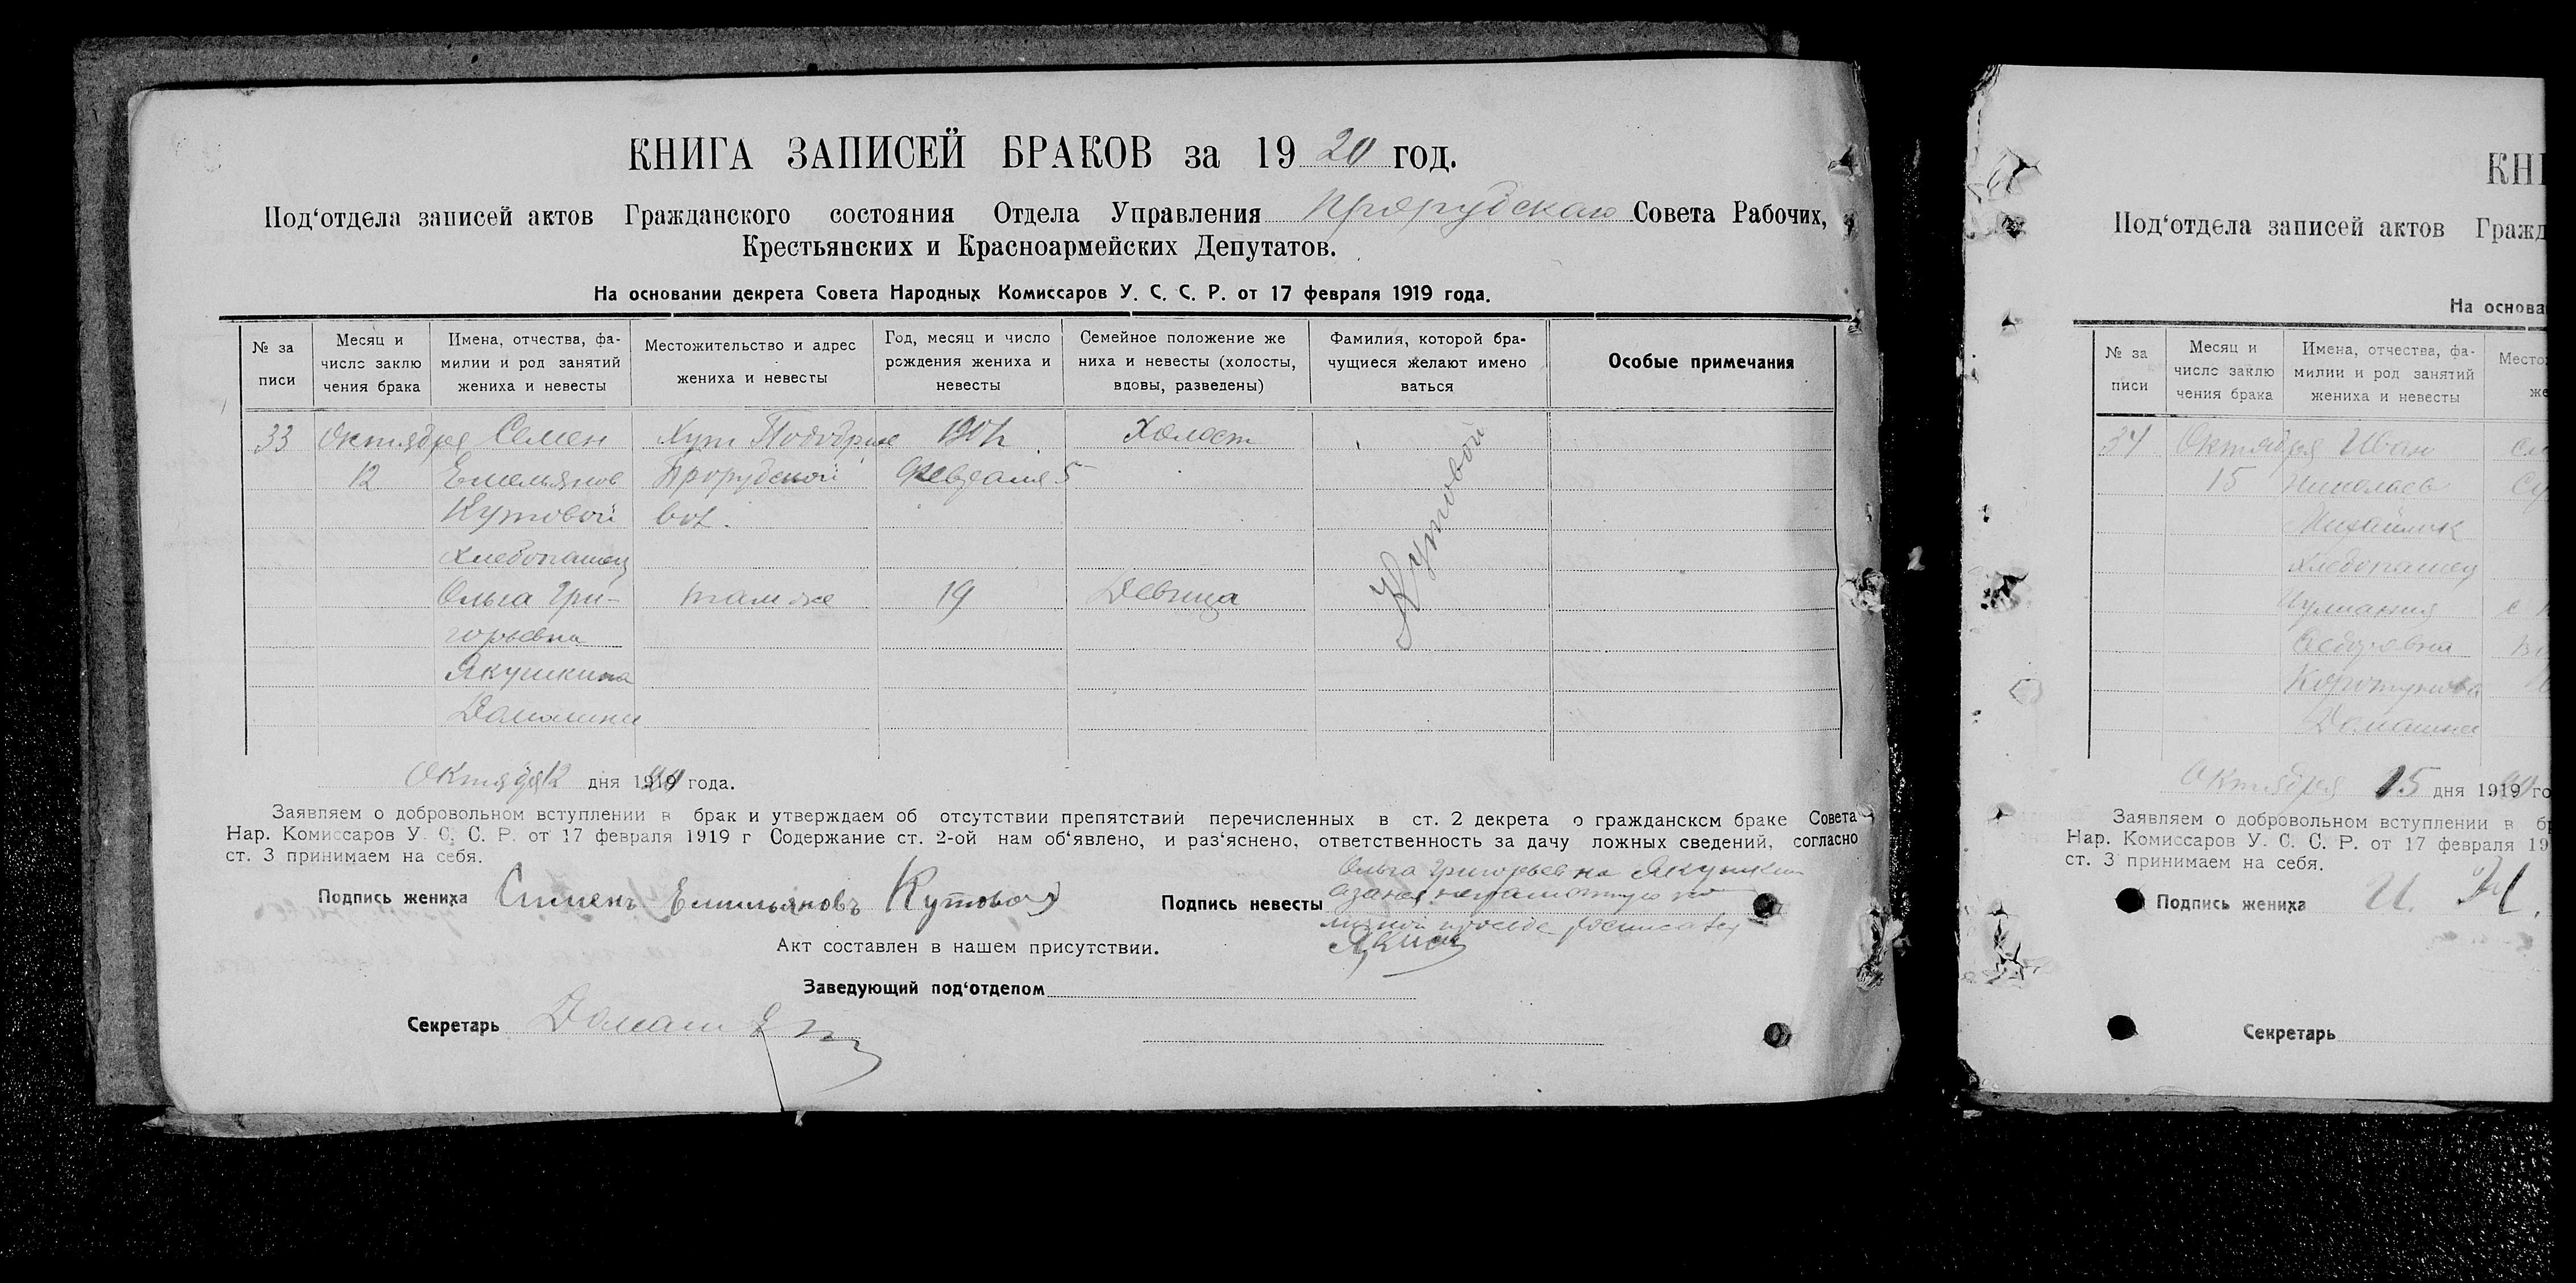 КНИГА ЗАПИСЕЙ БРАКОВ за 1920 год.
Под‘отдела записей актов Гражданского состояния Отдела Управления Прорубскаго Совета Рабочих,
Крестьянских и Красноармейских Депутатов.
На основании декрета Совета Народных Комиссаров У. С. С. Р. от 17 февраля 1919 года.
№ за
писи
Месяц и
число заклю
чения брака
Имена, отчества, фа-
милии и род занятий
жениха и невесты
Местожительство и адрес
жениха и невесты
Год, месяц и число
рождения жениха и
невесты
Семейное положение же
ниха и невесты (холосты,
вдовы, разведены)
Фамилия, которой бра-
чущиеся желают имено
ваться
Особые примечания
33 Октября Семен Хут Холост
12 Емельянов Прорубской Февраля 5
Кутовой вол.
хлебопашец
Ольга Гри- там же 19 Девица
горьевна
Якушкина
Кутовой
Октября 12 дня 1920 года.
Заявляем о добровольном вступлении в брак и утверждаем об отсутствии препятствий перечисленных в ст. 2 декрета о гражданском браке Совета
Нар. Комиссаров У. С. С. Р. от 17 февраля 1919 г Содержание ст. 2-ой нам об‘явлено, и раз‘яснено, ответственность за дачу ложных сведений, согласно
ст. 3 принимаем на себя.
Подпись жениха Симень Емильяновъ Кутовой
Подпись невесты Ольга Григорьевна Якушкин
неграмотную по
личной просьбе
Акт составлен в нашем присутствии.
Заведующий под‘отделом
Секретарь
КНИ
Под‘отдела записей актов Гражд
На основа
№ за
писи
Месяц и
число заклю
чения брака
Имена, отчества, фа-
милии и род занятий
жениха и невесты
Место
же
34 Октября Иван
15 Николаев
Михайлик
хлебопашец
Иулиания
Федоровна
Домашнее
Октября 15 дня 1920 го
Заявляем о добровольном вступлении в бр
Нар. Комиссаров У. С. С. Р. от 17 февраля 19
ст. 3 принимаем на себя.
Подпись жениха И. М.
Секретарь